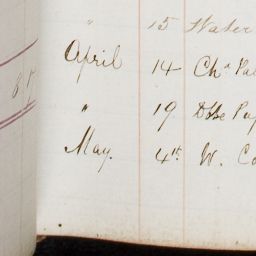 " 15 Water
April 14 Chs Pa
" 19 Ditto Pay
May. 4th W. Co